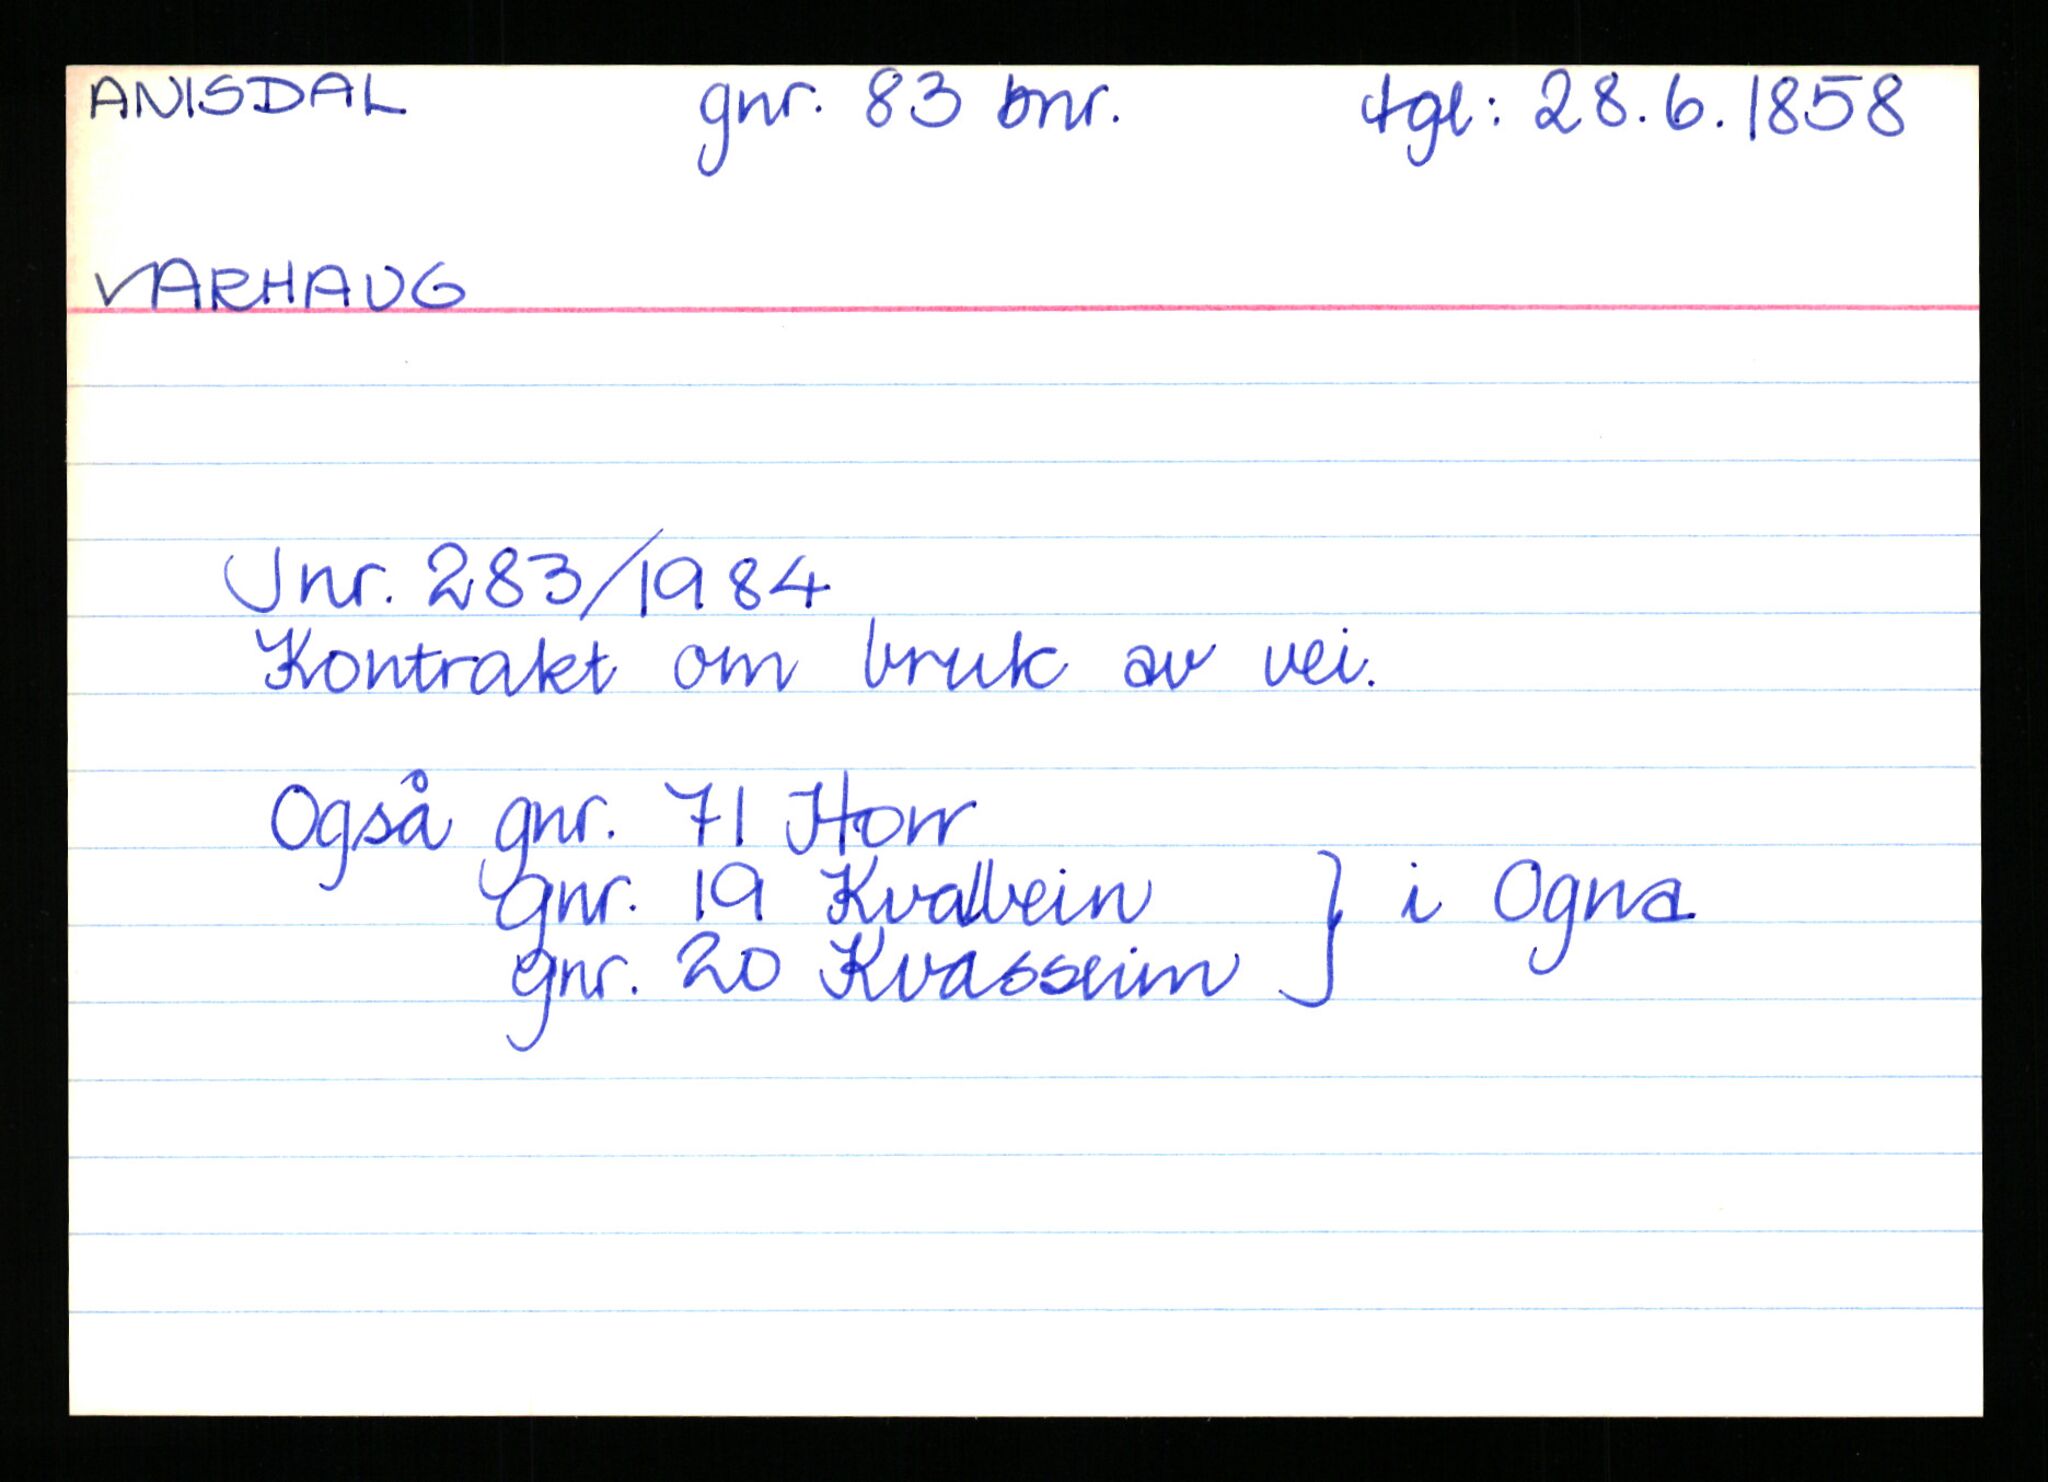 ANISDAL gnr. 83 bnr. tgl: 28.6.1858
VARHAUG
Jnr. 283/1984
Kontrakt om bruk av vei.
Også gnr. 71 Horr
gnr. 19 Kvalbein } i Ogna
gnr. 20 Kvasseim